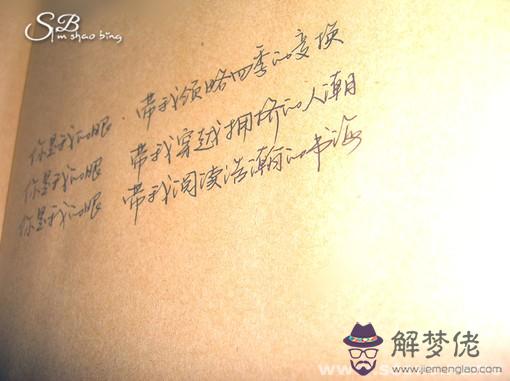 SB
Sim shao bing
你是我的眼·带我领略四季的变换
你是我的眼 带我穿越拥挤的人潮
你是我的眼 带我阅读浩瀚的书海
解梦佬
www.jiemenglao.com